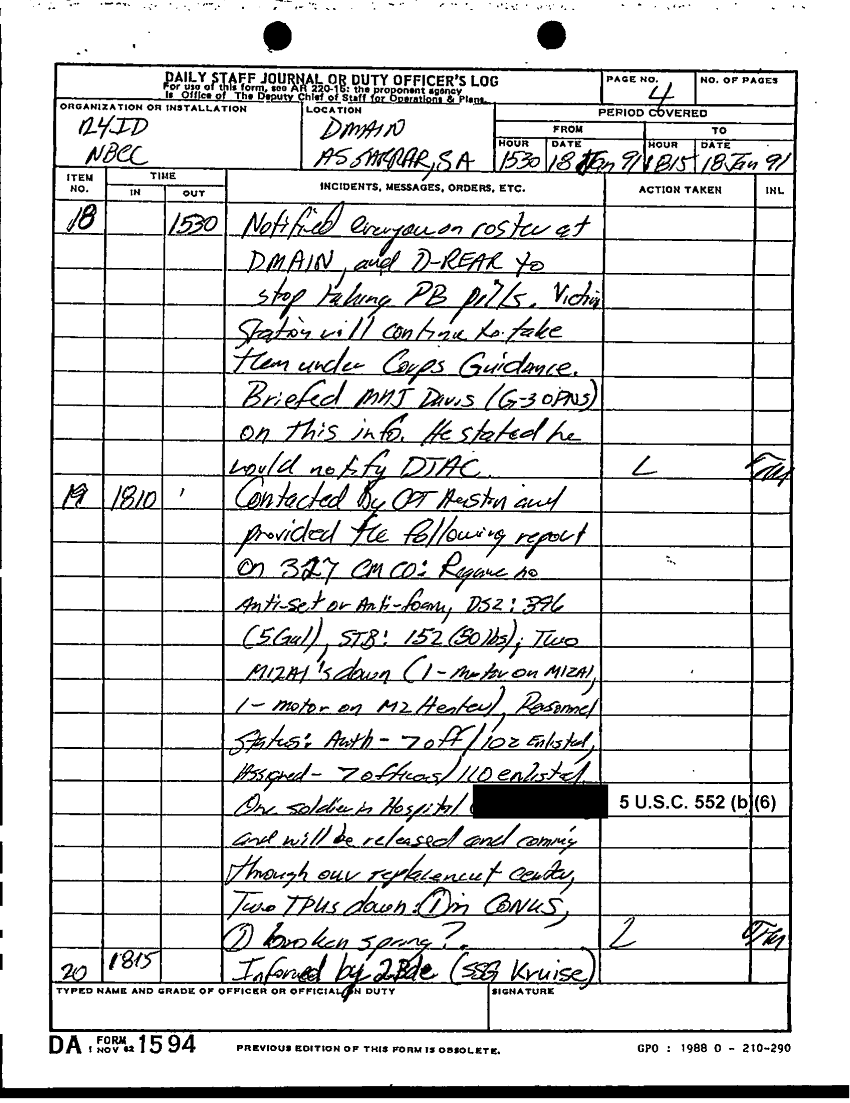 DAILY STAFF JOURNAL OR DUTY OFFICER'S LOG
For use of this form, see AR 220-15; the proponent agency
is Office of The Deputy Chief of Staff for Operations & Plans.
PAGE NO.
4
NO. OF PAGES
ORGANIZATION OR INSTALLATION
24ID
NBCC
LOCATION
DMAIN
AS SARRAR, SA
PERIOD COVERED
FROM
TO
HOUR
DATE
HOUR
DATE
1530
18 Jan 91
1815
18 Jan 91
ITEM NO.
TIME
IN
OUT
INCIDENTS, MESSAGES, ORDERS, ETC.
ACTION TAKEN
INL
18 1530 Notified everyone on roster at
DMAIN, and D-REAR to
stop taking PB pills. Victim
Station will continue to take
them under Corps Guidance.
Briefed MAJ Davis (G-3 OPNS)
on this info. He stated he
would notify DTAC. L
19 1810 Contacted by CPT and
provided the following report
on 327 CM CO: Require no
Anti-set or Anti-foam, DS2: 396
(5 Gal), STB: 152 (50 lbs); Two
M12A1's down (1-motor on M12A1,
1-motor on M2 Heater), Personnel
Status: Auth - 7 off/102 Enlisted,
Assigned - 7 officers/110 enlisted.
One soldier in Hospital (
5 U.S.C. 552 (b)(6)
and will be released and coming
through our replacement center,
Two TPUs down: ① in CONUS,
① broken spring?. L
20 1815 Informed by 2Bde (SSG Kruise)
TYPED NAME AND GRADE OF OFFICER OR OFFICIAL ON DUTY
SIGNATURE
DA FORM 1 NOV 62 1594
PREVIOUS EDITION OF THIS FORM IS OBSOLETE.
GPO : 1988 O - 210-290